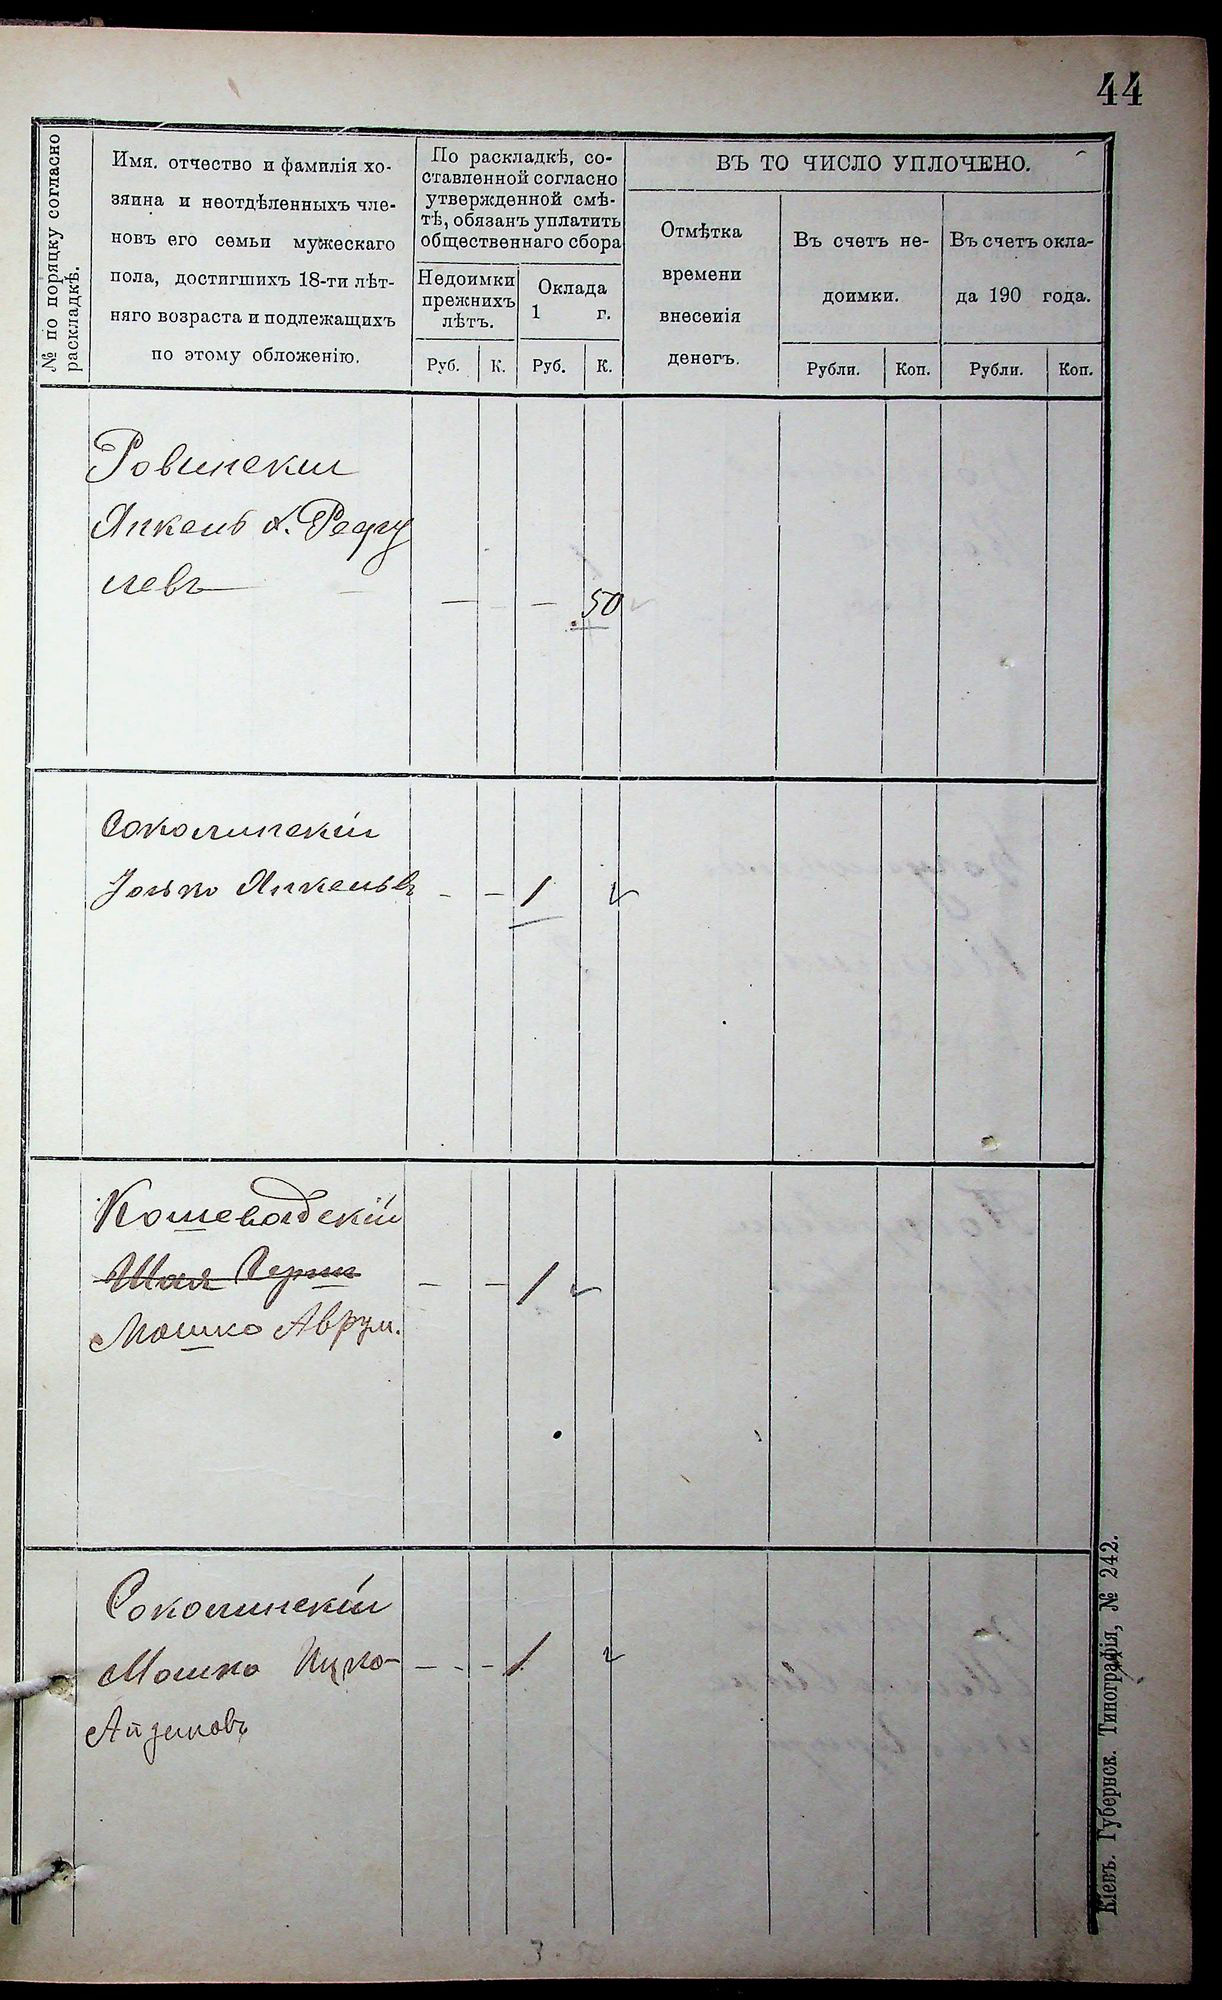 44
№ по порядку согласно
раскладкѣ.
Имя, отчество и фамилія хо-
зяина и неотдѣленныхъ чле-
новъ его семьи мужескаго
пола, достигшихъ 18-ти лѣт-
няго возраста и подлежащихъ
по этому обложенію.
По раскладкѣ, со-
ставленной согласно
утвержденной смѣ-
тѣ, обязанъ уплатить
общественнаго сбора
Недоимки
прежнихъ
лѣтъ.
Оклада
1 г.
Руб. К. Руб. К.
ВЪ ТО ЧИСЛО УПЛОЧЕНО.
Отмѣтка
времени
внесенія
денегъ.
Въ счетъ не-
доимки.
Въ счетъ окла-
да 190 года.
Рубли. Коп. Рубли. Коп.
Ровинскіи
Янкель
левъ — — 50
Соколинскій
Іолько Янкельв - - 1
Кошеватскій
Шая Герш — — 1
Мошко Аврум.
Соколинскій
Мошко Ицко- — - - 1
Айзиковъ
Кіевъ. Губернск. Типографія, № 242.